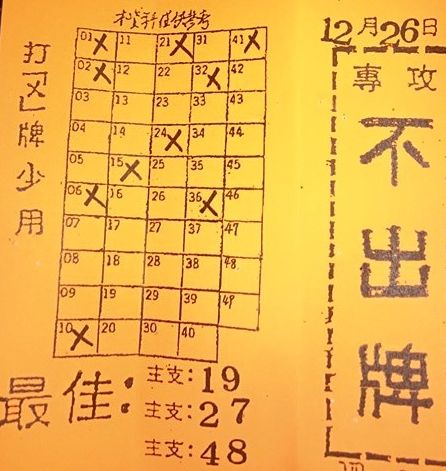 本資料僅供參考
12月26日
專攻
不出牌
打「X」牌少用
01 X 11 21 X 31 41 X
02 X 12 22 32 X 42
03 13 23 33 43
04 14 24 X 34 44
05 15 X 25 35 45
06 X 16 26 36 X 46
07 17 27 37 47
08 18 28 38 48
09 19 29 39 49
10 X 20 30 40
最佳:
主支:19
主支:27
主支:48